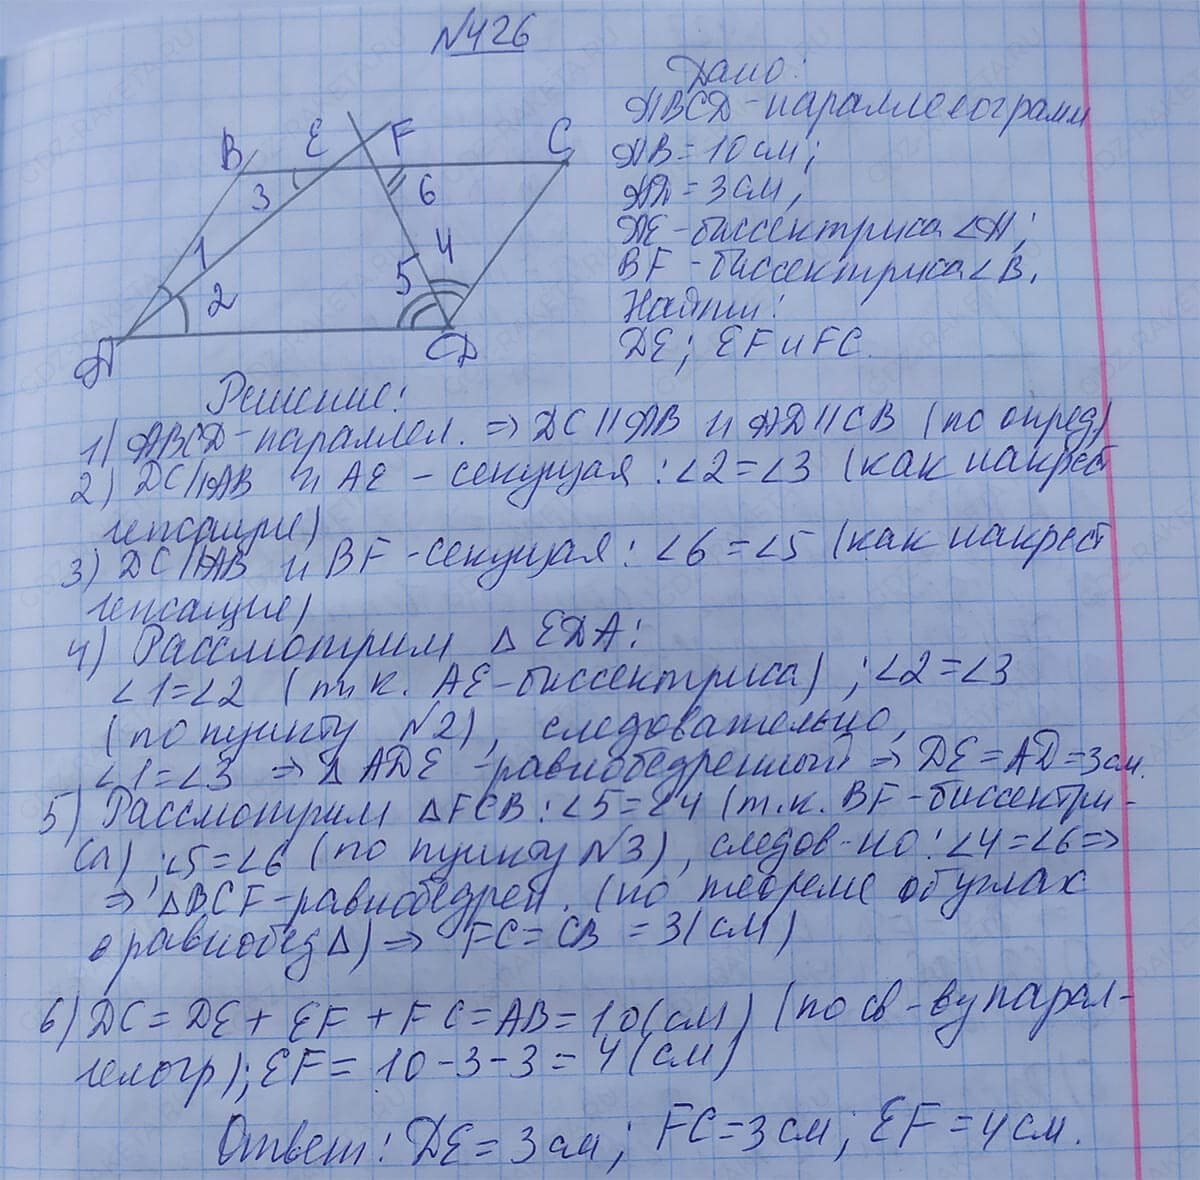 №426
Дано:
ABCD-параллелограмм
AB=10 см;
AD=3 см,
AE-биссектриса ∠A;
BF-биссектриса ∠B.
Найти:
DE; EF и FC.
B E F C
3 6
1 5 4
2
A D
Решение:
1) ABCD-параллел. ⇒ DC||AB и AD||CB (по опред)
2) DC||AB и AE - секущая: ∠2=∠3 (как накрест
лежащие)
3) DC||AB и BF-секущая: ∠6=∠5 (как накрест
лежащие)
4) Рассмотрим △EDA:
∠1=∠2 (т.к. AE-биссектриса); ∠2=∠3
(по пункту №2), следовательно,
∠1=∠3 ⇒ △ADE-равнобедренный ⇒ DE=AD=3см.
5) Рассмотрим △FCB: ∠5=∠4 (т.к. BF-биссектри-
са); ∠5=∠6 (по пункту №3), следов-но: ∠4=∠6 ⇒
⇒ △BCF-равнобедрен. (по теореме об углах
равнобед△) ⇒ FC=CB=3(см)
6) DC=DE+EF+FC=AB=10(см) (по св-ву парал-
лелогр); EF=10-3-3=4(см)
Ответ: DE=3см; FC=3см; EF=4см.
GDZ-RAKETA.RU